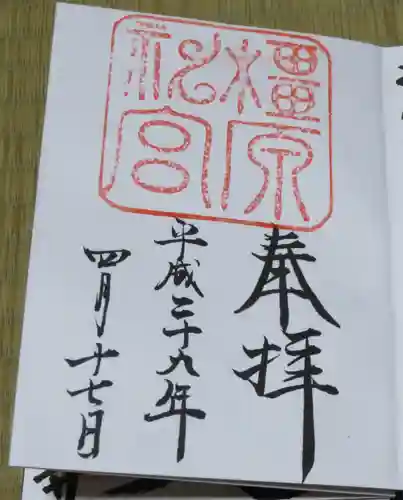 橿原
神宮
奉拝
平成二十九年
四月十七日